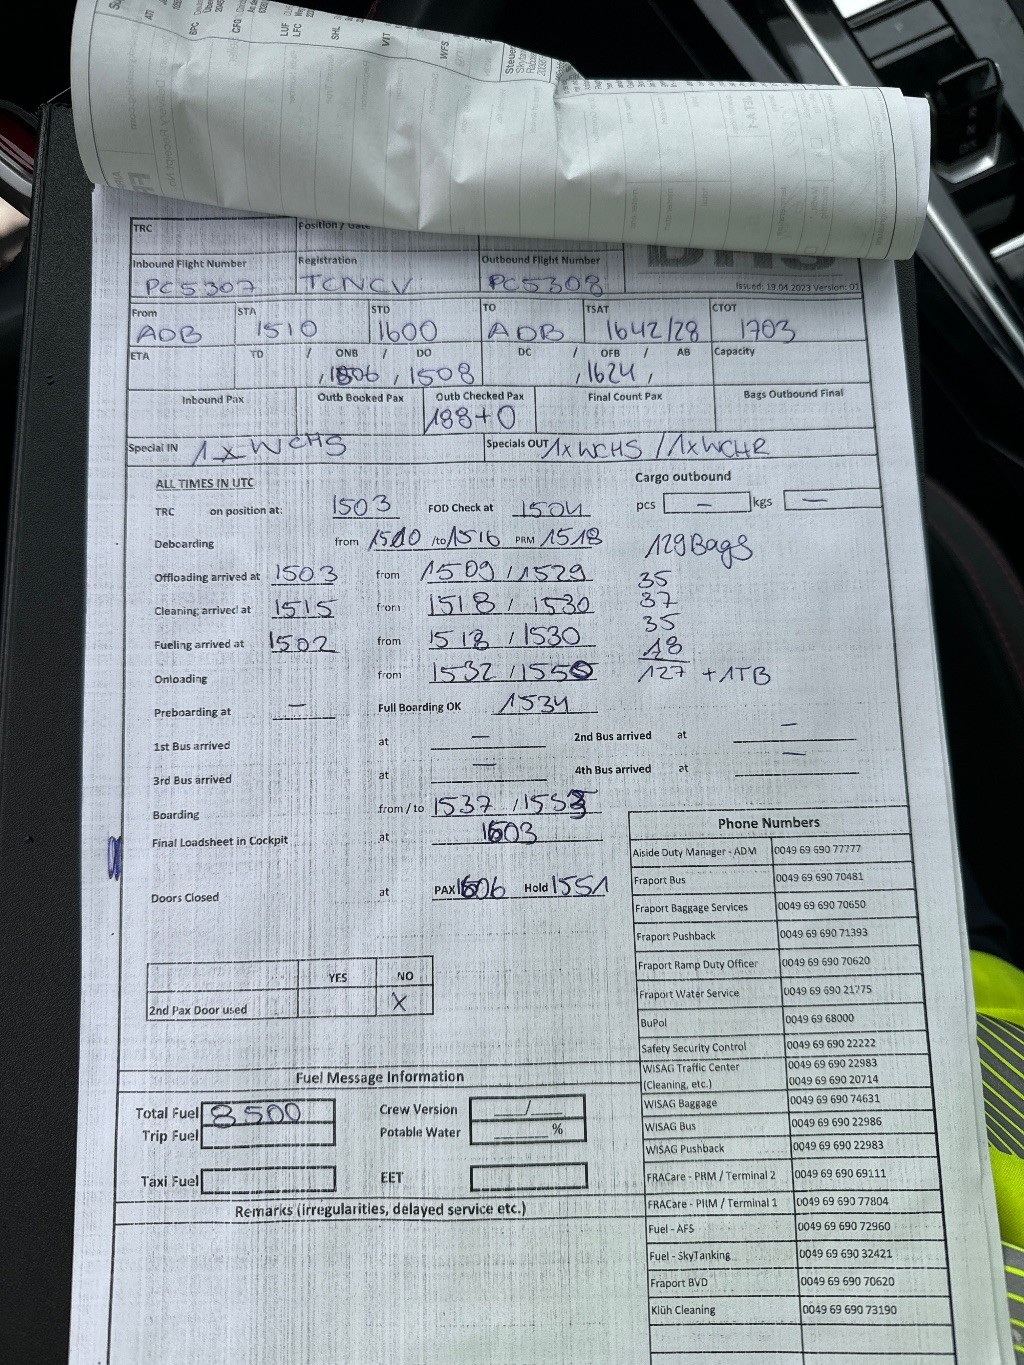 BFC
CFG
LUF
LFC
SHL
VIT
WFS
TRC
Inbound Flight Number Registration Outbound Flight Number
PC5307 TCNCV PC5308
Issued: 19.04.2023 Version: 01
From STA STD TO TSAT CTOT
ADB 1510 1600 ADB 1642/28 1703
ETA TD / ONB / DO DC / OFB / AB Capacity
, 1506 , 1508 , 1624 ,
Inbound Pax Outb Booked Pax Outb Checked Pax Final Count Pax Bags Outbound Final
188+0
Special IN 1x WCHS Specials OUT 1xWCHS / 1xWCHR
ALL TIMES IN UTC Cargo outbound
TRC on position at: 1503 FOD Check at 1504 pcs — kgs —
Deboarding from 1510 /to 1516 PRM 1518 129Bags
Offloading arrived at 1503 from 1509 / 1529 35
Cleaning arrived at 1515 from 1518 / 1530 37
Fueling arrived at 1502 from 1518 / 1530 35
18
Onloading from 1532 / 1550 127 + 1TB
Preboarding at — Full Boarding OK 1534
1st Bus arrived at — 2nd Bus arrived at —
3rd Bus arrived at — 4th Bus arrived at —
Boarding from / to 1537 / 1553
Final Loadsheet in Cockpit at 1603
Doors Closed at PAX 1606 Hold 1551
YES NO
2nd Pax Door used X
Fuel Message Information
Total Fuel 8500 Crew Version /
Trip Fuel Potable Water %
Taxi Fuel EET
Remarks (irregularities, delayed service etc.)
Phone Numbers
Aiside Duty Manager - ADM 0049 69 690 77777
Fraport Bus 0049 69 690 70481
Fraport Baggage Services 0049 69 690 70650
Fraport Pushback 0049 69 690 71393
Fraport Ramp Duty Officer 0049 69 690 70620
Fraport Water Service 0049 69 690 21775
BuPol 0049 69 68000
Safety Security Control 0049 69 690 22222
WISAG Traffic Center 0049 69 690 22983
(Cleaning, etc.) 0049 69 690 20714
WISAG Baggage 0049 69 690 74631
WISAG Bus 0049 69 690 22986
WISAG Pushback 0049 69 690 22983
FRACare - PRM / Terminal 2 0049 69 690 69111
FRACare - PRM / Terminal 1 0049 69 690 77804
Fuel - AFS 0049 69 690 72960
Fuel - SkyTanking 0049 69 690 32421
Fraport BVD 0049 69 690 70620
Klüh Cleaning 0049 69 690 73190